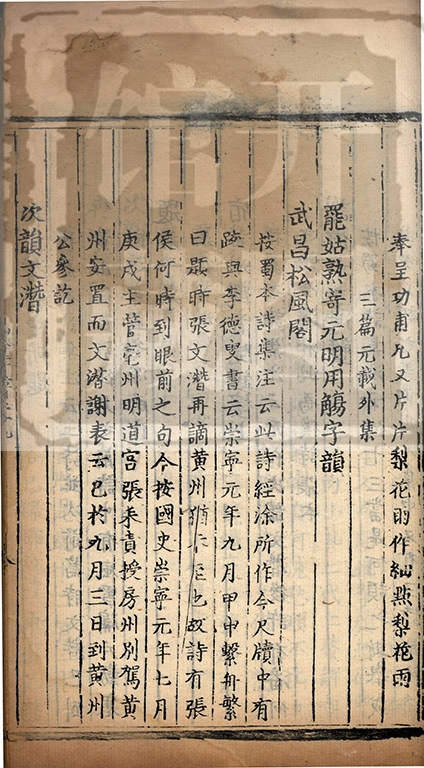 奉呈功甫九又片片梨花雨作細點梨花雨
三篇元載外集
罷姑熟寄元明用觴字韻
武昌松風閣
按蜀本詩集注云此詩經涂所作今尺牘中有
跋與李德叟書云崇寧元年九月甲申繫舟繁
日題時張文潛再謫黃州猶不至也故詩有張
侯何時到眼前之句今按國史崇寧元年七月
庚戌主管亳州明道宮張耒責授房州別駕黃
州安置而文潛謝表云已於九月三日到黃州
公參訖
次韻文潛